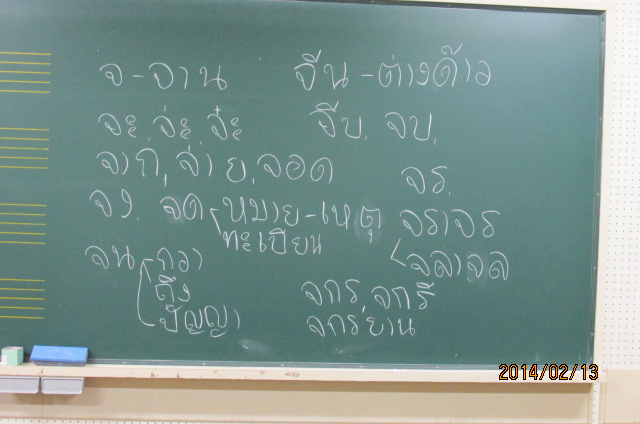 จ-จาน จีน-ต่างด้าว
จะ, จ่ะ, จ๊ะ จีบ, จบ,
จาก, จ่าย, จอด จร.
จง. จด หมาย-เหตุ จราจร
ทะเบียน
จน กว่า จลาจล
ถึง จักร, จักรี
ปัญญา จักรยาน
2014/02/13